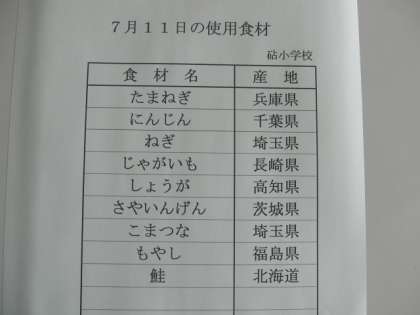 7月11日の使用食材
砧小学校
食材名 産地
たまねぎ 兵庫県
にんじん 千葉県
ねぎ 埼玉県
じゃがいも 長崎県
しょうが 高知県
さやいんげん 茨城県
こまつな 埼玉県
もやし 福島県
鮭 北海道